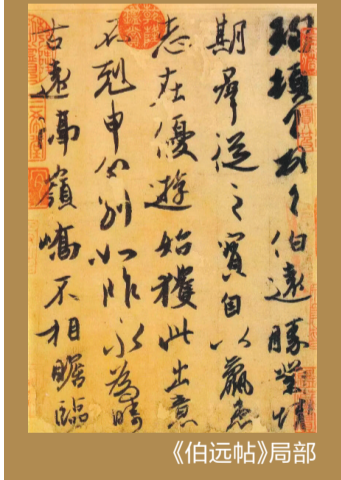 珣頓首頓首伯遠勝業情
期羣從之寶自以羸患
志在優遊始獲此出意
不剋申分別如昨永為疇
古遠隔嶺嶠不相瞻臨
《伯远帖》局部